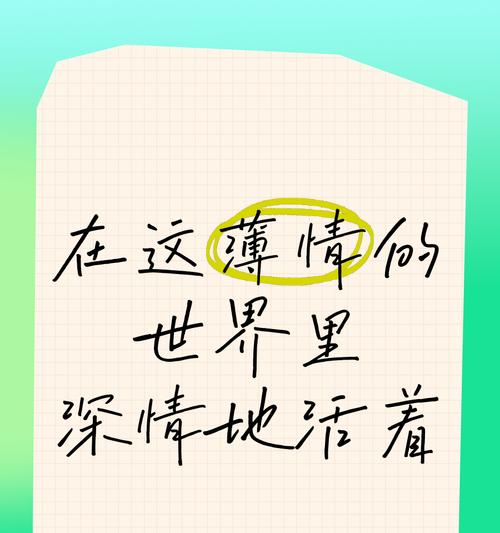 在这薄情的
世界里
深情地活着